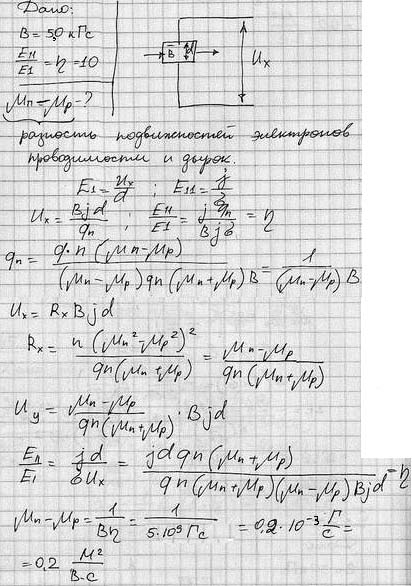 Дано:
B = 5,0 кГс
E₁₁/E⊥ = η = 10
μn − μp − ?
B d Uₓ
разность подвижностей электронов
проводимости и дырок.
E⊥ = Uₓ/d ; E₁₁ = j/σ
Uₓ = Bjd/qn ; E₁₁/E⊥ = j qn/Bjσ = η
qn = q·n(μn−μp)/(μn−μp)qn(μn+μp)B = 1/(μn−μp)B
Uₓ = Rₓ B j d
Rₓ = n(μn²−μp²)²/qn(μn+μp) = μn−μp/qn(μn+μp)
Uy = μn−μp/qn(μn+μp) · Bjd
E₁₁/E⊥ = jd/σUₓ = jd qn(μn+μp)/qn(μn+μp)(μn−μp)Bjd = η
μn−μp = 1/Bη = 1/5·10⁹Гс = 0,2·10⁻³ Г/с =
= 0,2 м²/В·с